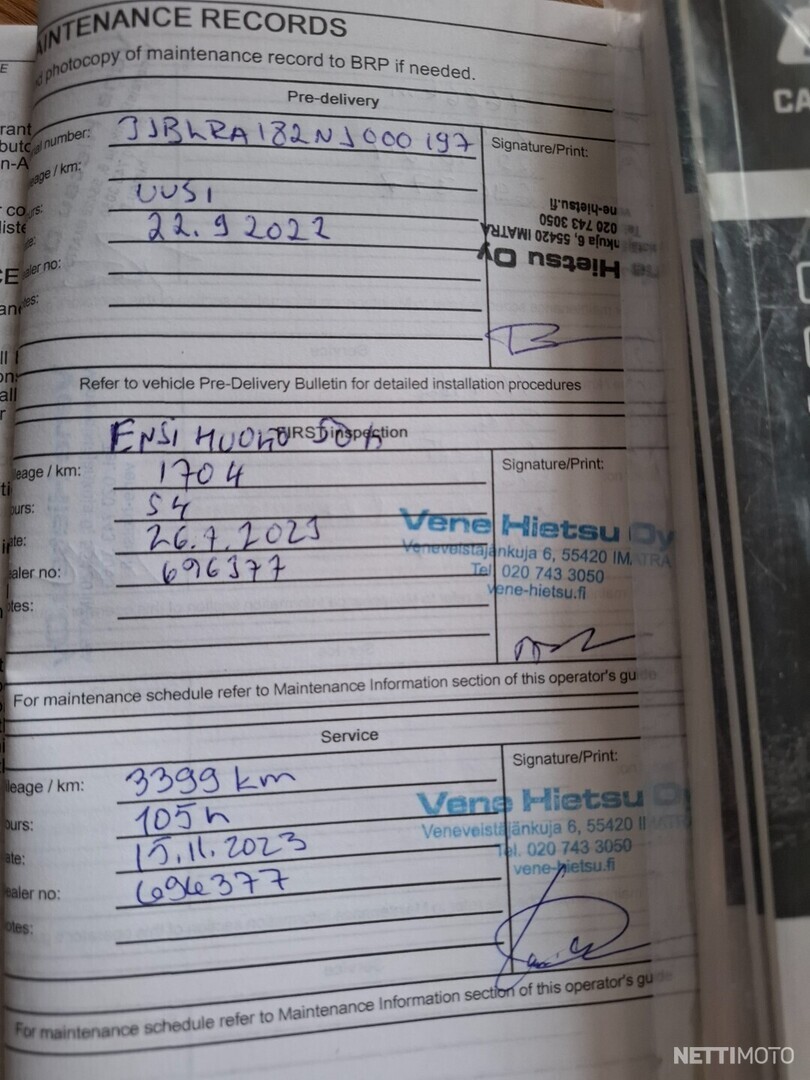 MAINTENANCE RECORDS
photocopy of maintenance record to BRP if needed.
Pre-delivery
number: 3JBLRA182NJ000197
eage / km:
Signature/Print:
UUSI
22.9 2022
ler no:
Hietsu Oy
nkuja 6, 55420 IMATRA
020 743 3050
ne-hietsu.fi
Refer to vehicle Pre-Delivery Bulletin for detailed installation procedures
ENSI HUOLTO 50 h
FIRST inspection
leage / km: 1704
Signature/Print:
ours: 54
ate: 26.7.2023
ealer no: 696377
otes:
Vene Hietsu Oy
Veneveistäjänkuja 6, 55420 IMATRA
Tel. 020 743 3050
vene-hietsu.fi
For maintenance schedule refer to Maintenance Information section of this operator's guide
Service
ileage / km: 3399 km
Signature/Print:
ours: 105 h
ate: 15.11.2023
ealer no: 696377
otes:
Vene Hietsu Oy
Veneveistäjänkuja 6, 55420 IMATRA
Tel. 020 743 3050
vene-hietsu.fi
For maintenance schedule refer to Maintenance Information section of this operator's guide
CA
NETTIMOTO